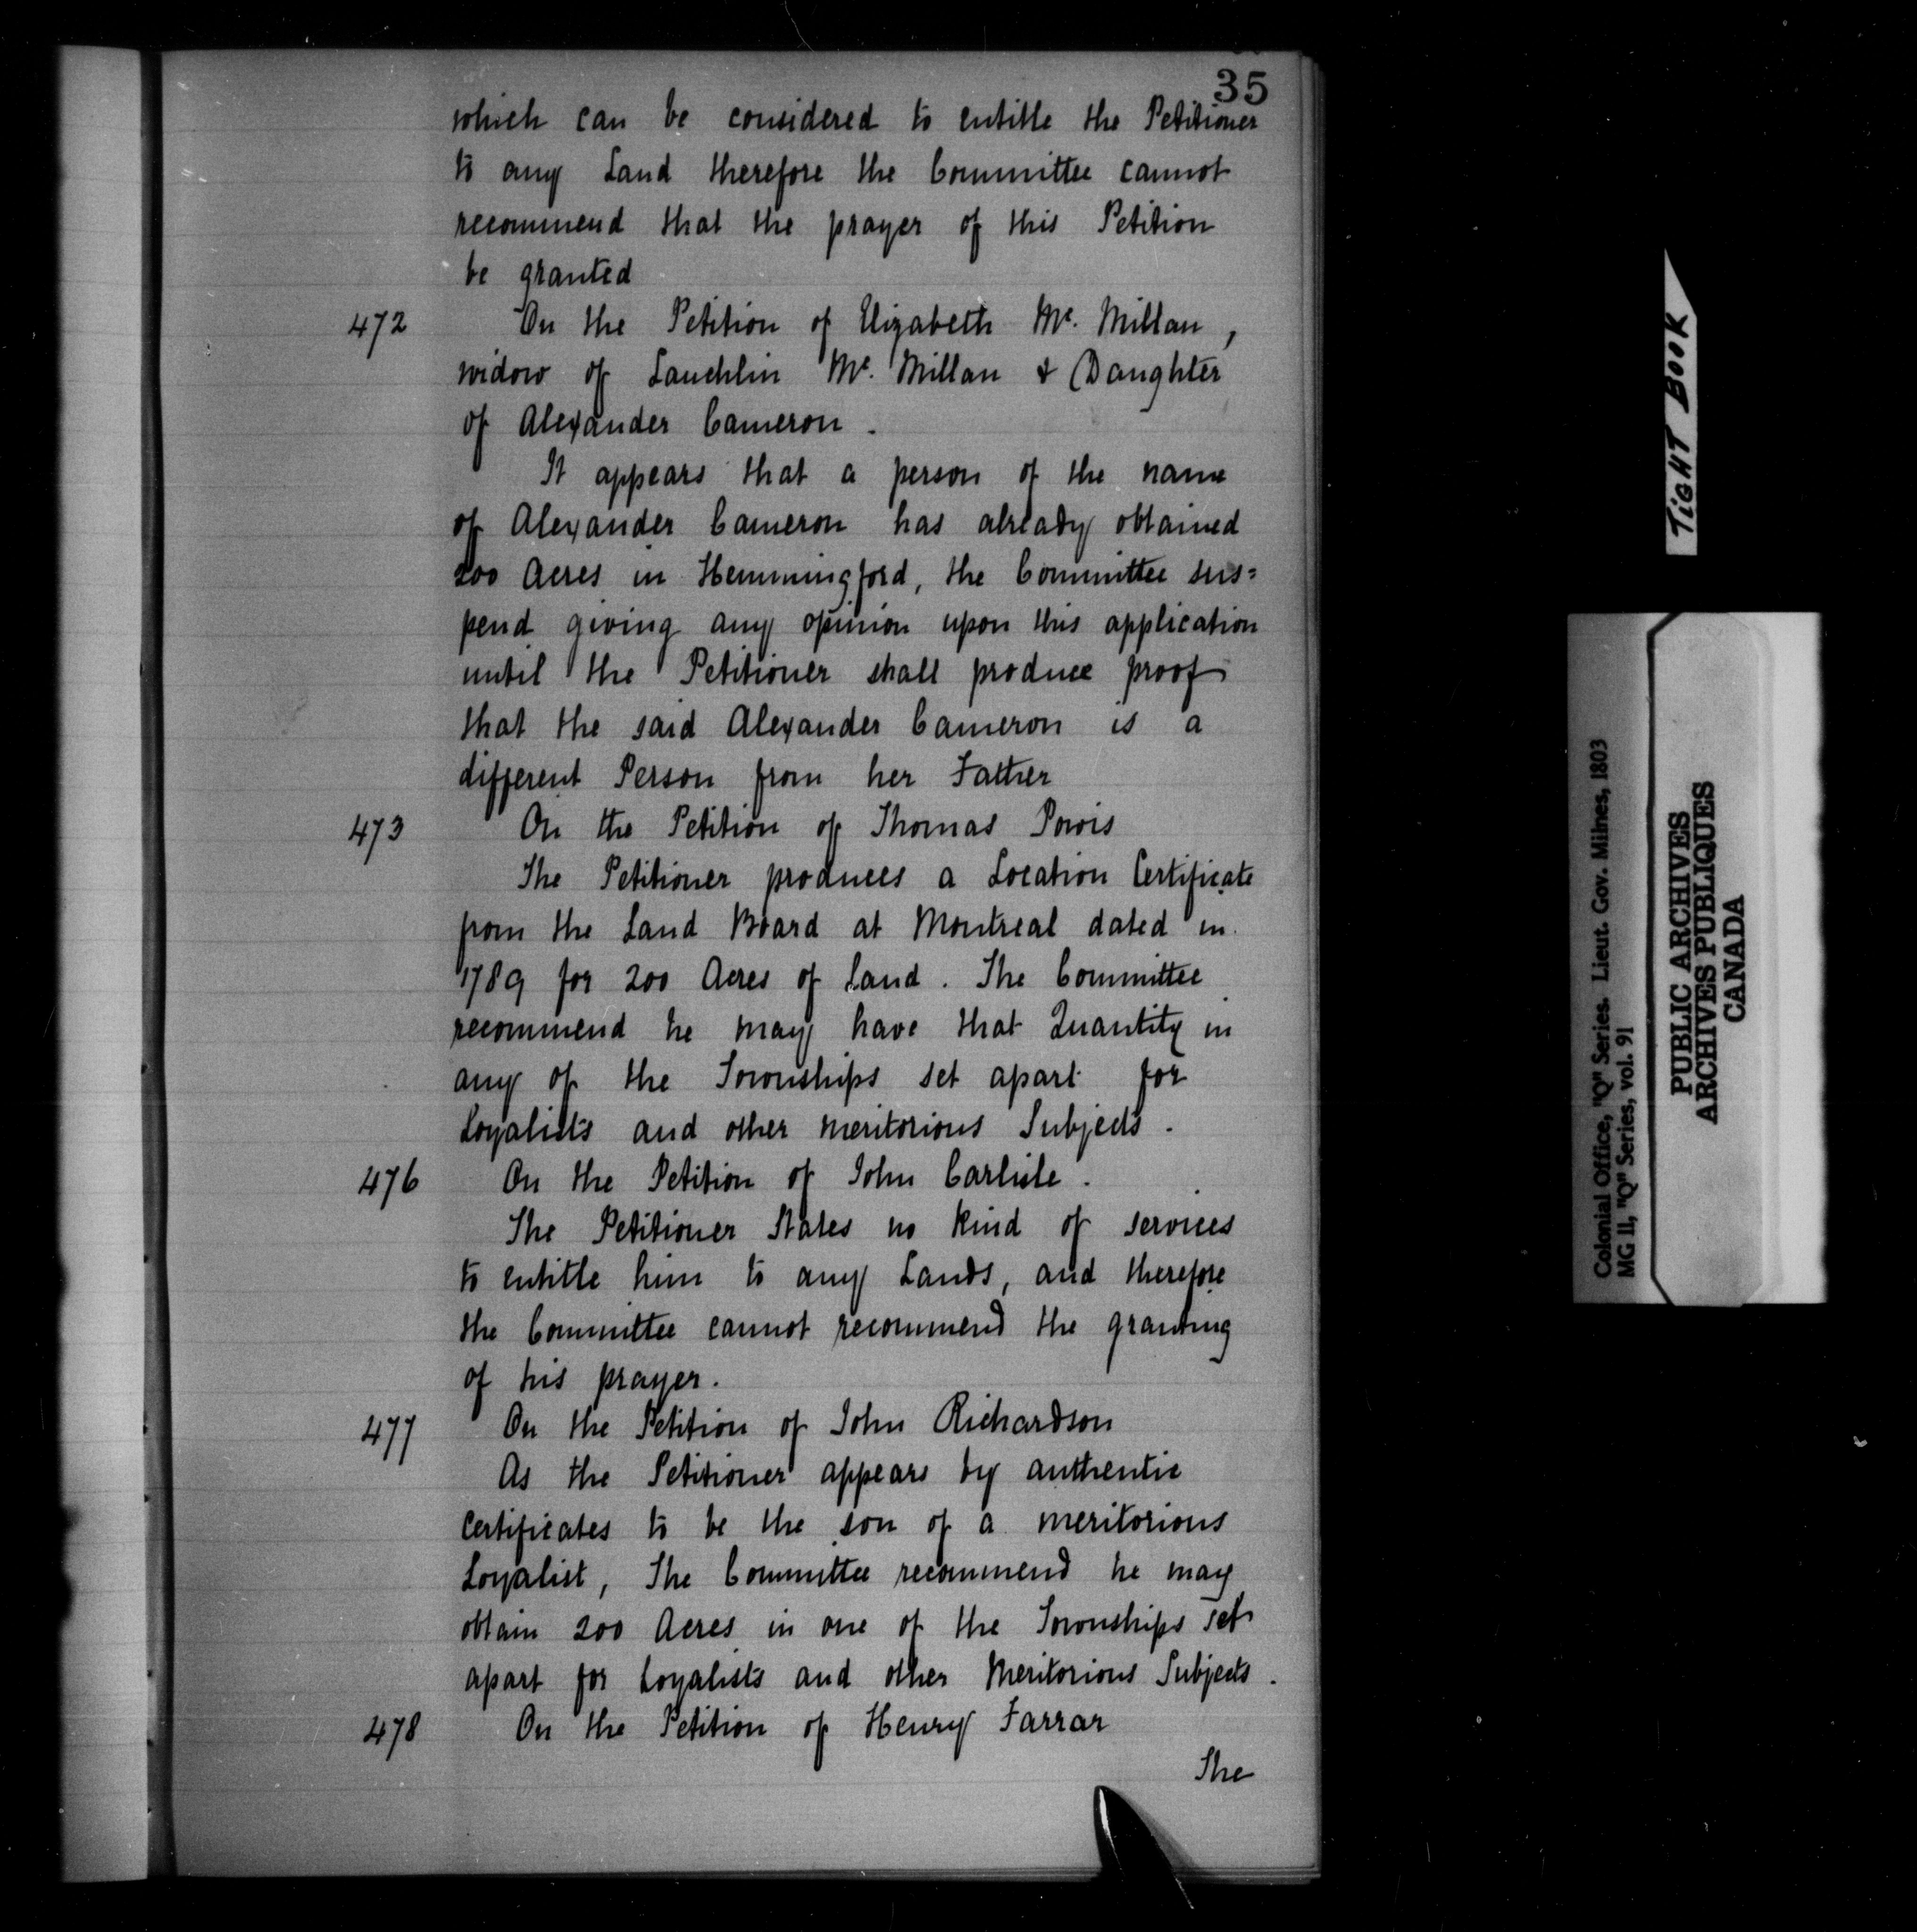 35
which can be considered to entitle the Petitioner
to any Land therefore the Committee cannot
recommend that the prayer of this Petition
be granted
472 On the Petition of Elizabeth Mc. Millan,
widow of Lauchlin Mc. Millan & Daughter
of Alexander Cameron.
It appears that a person of the name
of Alexander Cameron has already obtained
200 Acres in Hemmingford, the Committee sus=
pend giving any opinion upon this application
until the Petitioner shall produce proof
that the said Alexander Cameron is a
different Person from her Father
473 On the Petition of Thomas Powis
The Petitioner produces a Location Certificate
from the Land Board at Montreal dated in
1789 for 200 Acres of Land. The Committee
recommend he may have that Quantity in
any of the Townships set apart for
Loyalists and other meritorious Subjects.
476 On the Petition of John Carlisle.
The Petitioner States no kind of services
to entitle him to any Lands, and therefore
the Committee cannot recommend the granting
of his prayer.
477 On the Petition of John Richardson
As the Petitioner appears by authentic
Certificates to be the son of a meritorious
Loyalist, The Committee recommend he may
obtain 200 Acres in one of the Townships set
apart for Loyalists and other Meritorious Subjects.
478 On the Petition of Henry Farrar
The
TIGHT BOOK
Colonial Office, "Q" Series. Lieut. Gov. Milnes, 1803
MG 11, "Q" Series, vol. 91
PUBLIC ARCHIVES
ARCHIVES PUBLIQUES
CANADA